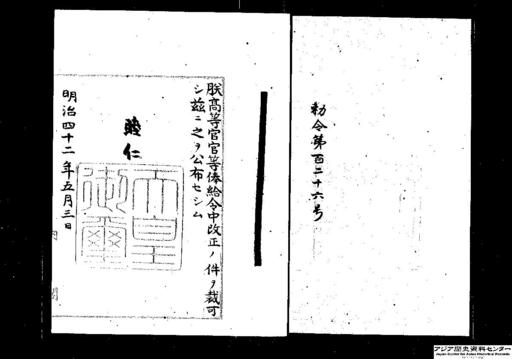 勅令第百二十六号
朕高等官官等俸給令中改正ノ件ヲ裁可
シ茲ニ之ヲ公布セシム
睦仁
天皇
御璽
明治四十二年五月三日
内閣
アジア歴史資料センター
Japan Center for Asian Historical Records